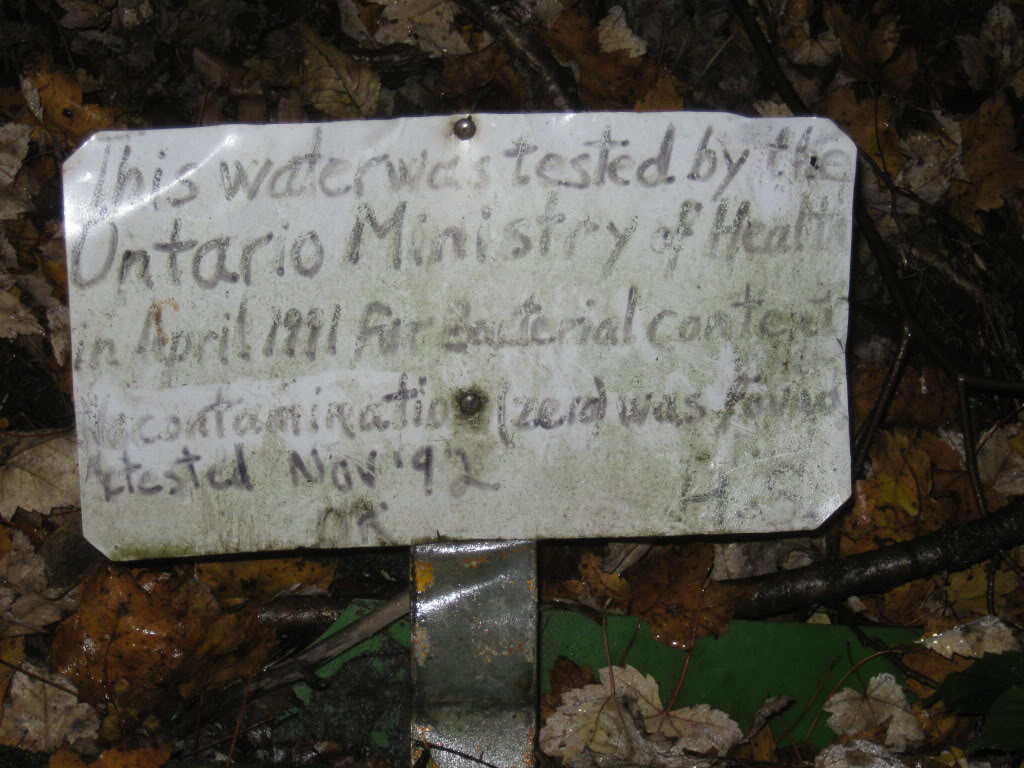 This water was tested by the
Ontario Ministry of Health
in April 1991 for bacterial content
No contamination (zero) was found
Retested Nov '92